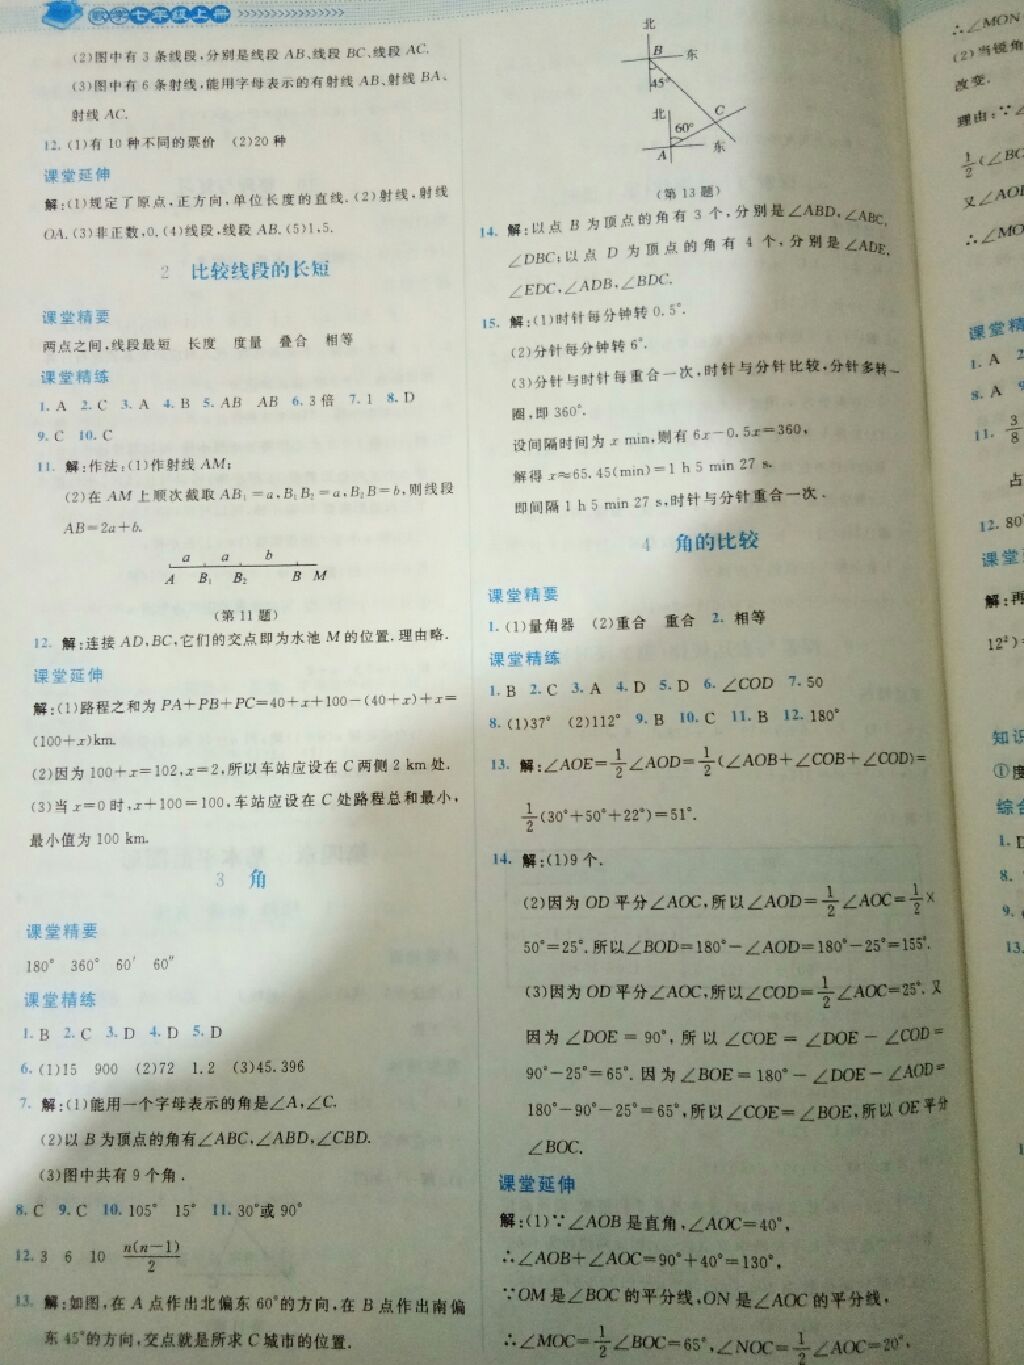 数学七年级上册
(2)图中有 3 条线段,分别是线段 AB、线段 BC、线段 AC.
(3)图中有 6 条射线,能用字母表示的有射线 AB、射线 BA、
射线 AC.
12. (1)有 10 种不同的票价 (2)20 种
课堂延伸
解:(1)规定了原点,正方向,单位长度的直线.(2)射线,射线
OA.(3)非正数,0.(4)线段,线段 AB.(5)1,5.
2 比较线段的长短
课堂精要
两点之间,线段最短 长度 度量 叠合 相等
课堂精练
1. A 2. C 3. A 4. B 5. AB AB 6. 3 倍 7. 1 8. D
9. C 10. C
11. 解:作法:(1)作射线 AM;
(2)在 AM 上顺次截取 AB₁=a,B₁B₂=a,B₂B=b,则线段
AB=2a+b.
a a b
A B₁ B₂ B M
(第 11 题)
12. 解:连接 AD,BC,它们的交点即为水池 M 的位置.理由略.
课堂延伸
解:(1)路程之和为 PA+PB+PC=40+x+100-(40+x)+x=
(100+x)km.
(2)因为 100+x=102,x=2,所以车站应设在 C 两侧 2 km 处.
(3)当 x=0 时,x+100=100.车站应设在 C 处路程总和最小,
最小值为 100 km.
3 角
课堂精要
180° 360° 60′ 60″
课堂精练
1. B 2. C 3. D 4. D 5. D
6. (1)15 900 (2)72 1.2 (3)45.396
7. 解:(1)能用一个字母表示的角是∠A,∠C.
(2)以 B 为顶点的角有∠ABC,∠ABD,∠CBD.
(3)图中共有 9 个角.
8. C 9. C 10. 105° 15° 11. 30°或 90°
12. 3 6 10 n(n-1)/2
13. 解:如图,在 A 点作出北偏东 60°的方向,在 B 点作出南偏
东 45°的方向,交点就是所求 C 城市的位置.
北
B 东
45°
北 C
60°
A 东
(第 13 题)
14. 解:以点 B 为顶点的角有 3 个,分别是∠ABD,∠ABC,
∠DBC;以点 D 为顶点的角有 4 个,分别是∠ADE,
∠EDC,∠ADB,∠BDC.
15. 解:(1)时针每分钟转 0.5°.
(2)分针每分钟转 6°.
(3)分针与时针每重合一次,时针与分针比较,分针多转一
圈,即 360°.
设间隔时间为 x min,则有 6x-0.5x=360,
解得 x≈65.45(min)=1 h 5 min 27 s.
即间隔 1 h 5 min 27 s,时针与分针重合一次.
4 角的比较
课堂精要
1. (1)量角器 (2)重合 重合 2. 相等
课堂精练
1. B 2. C 3. A 4. D 5. D 6. ∠COD 7. 50
8. (1)37° (2)112° 9. B 10. C 11. B 12. 180°
13. 解:∠AOE=1/2∠AOD=1/2(∠AOB+∠COB+∠COD)=
1/2(30°+50°+22°)=51°.
14. 解:(1)9 个.
(2)因为 OD 平分∠AOC,所以∠AOD=1/2∠AOC=1/2×
50°=25°.所以∠BOD=180°-∠AOD=180°-25°=155°.
(3)因为 OD 平分∠AOC,所以∠COD=1/2∠AOC=25°.又
因为∠DOE=90°,所以∠COE=∠DOE-∠COD=
90°-25°=65°.因为∠BOE=180°-∠DOE-∠AOD=
180°-90°-25°=65°,所以∠COE=∠BOE,所以 OE 平分
∠BOC.
课堂延伸
解:(1)∵∠AOB 是直角,∠AOC=40°,
∴∠AOB+∠AOC=90°+40°=130°,
∵OM 是∠BOC 的平分线,ON 是∠AOC 的平分线,
∴∠MOC=1/2∠BOC=65°,∠NOC=1/2∠AOC=20°,
∴∠MON
(2)当锐角
改变.
理由:∵∠
1/2(∠BO
又∠AO
∴∠MO
课堂精
1. A 2
8. A 9
11. 3/8
占
12. 80°
课堂
解:再
12²)=
知识
①度
综合
1. D
8.
9.
13.